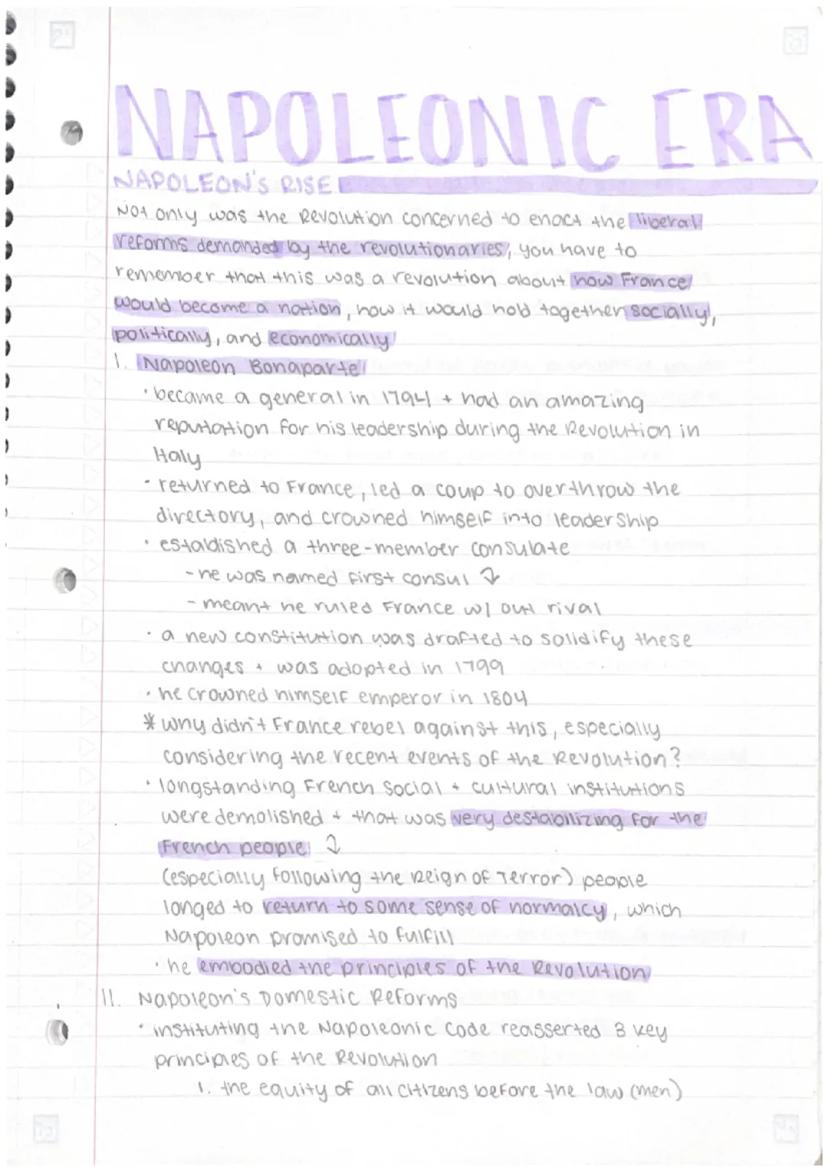 NAPOLEONIC ERA
NAPOLEON'S RISE
Not only was the Revolution concerned to enact the liberal
reforms demanded by the revolutionaries, you have to
remember that this was a revolution about how France
would become a nation, how it would hold together socially,
politically, and economically
I. Napoleon Bonaparte
• became a general in 1794 + had an amazing
reputation for his leadership during the Revolution in
Italy
• returned to France, led a coup to overthrow the
directory, and crowned himself into leadership
• established a three-member consulate
- he was named first consul ↴
- meant he ruled France w/ out rival
• a new constitution was drafted to solidify these
changes + was adopted in 1799
• he crowned himself emperor in 1804
* why didn't France rebel against this, especially
considering the recent events of the Revolution?
• longstanding French social + cultural institutions
were demolished + that was very destabilizing for the
French people ↴
(especially following the Reign of Terror) people
longed to return to some sense of normalcy, which
Napoleon promised to fulfill
• he embodied the principles of the Revolution
II. Napoleon's Domestic Reforms
• instituting the Napoleonic Code reasserted 3 key
principles of the Revolution
1. the equity of all citizens before the law (men)